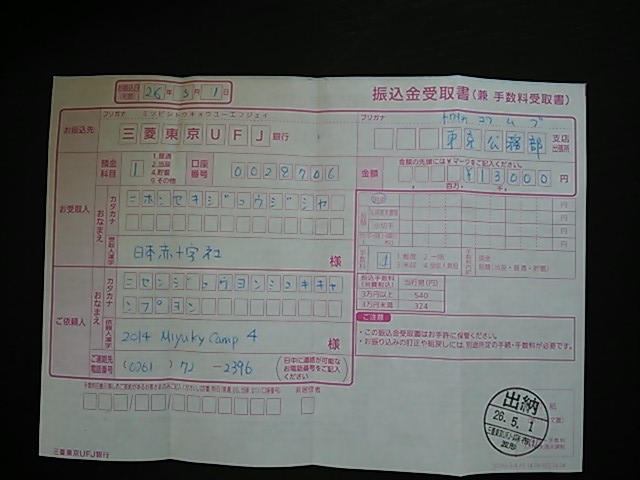 お振込日 26年 5月 1日
振込金受取書(兼 手数料受取書)
フリガナ ミツビシトウキョウユーエフジェイ
お振込先 三菱東京UFJ 銀行
フリガナ
東京公務部 支店 出張所
預金科目 1 1.普通 2.当座 4.貯蓄 9.その他
口座番号 0028706
金額の先頭には¥マークをご記入ください。
金額 ¥13000 円
百万 千
お受取人 おなまえ カタカナ ニホンセキジュウジシャ
受取人漢字 日本赤十字社 様
ご依頼人 おなまえ カタカナ ニセンジュウヨンミユキキャ
ンプヨン
依頼人漢字 2014 Miyuky Camp 4 様
ご連絡先電話番号 (0261) 72 -2396
(日中に連絡が可能なお電話番号をご記入ください)
振込手数料(消費税込) 当行宛(円)
3万円以上 540
3万円未満 324
ご注意
・この振込金受取書はお手許に保管ください。
・お振り込みの訂正や組戻しには、別途所定の手続・手数料が必要です。
非居住者
出納
26.5.1
三菱東京UFJ銀行